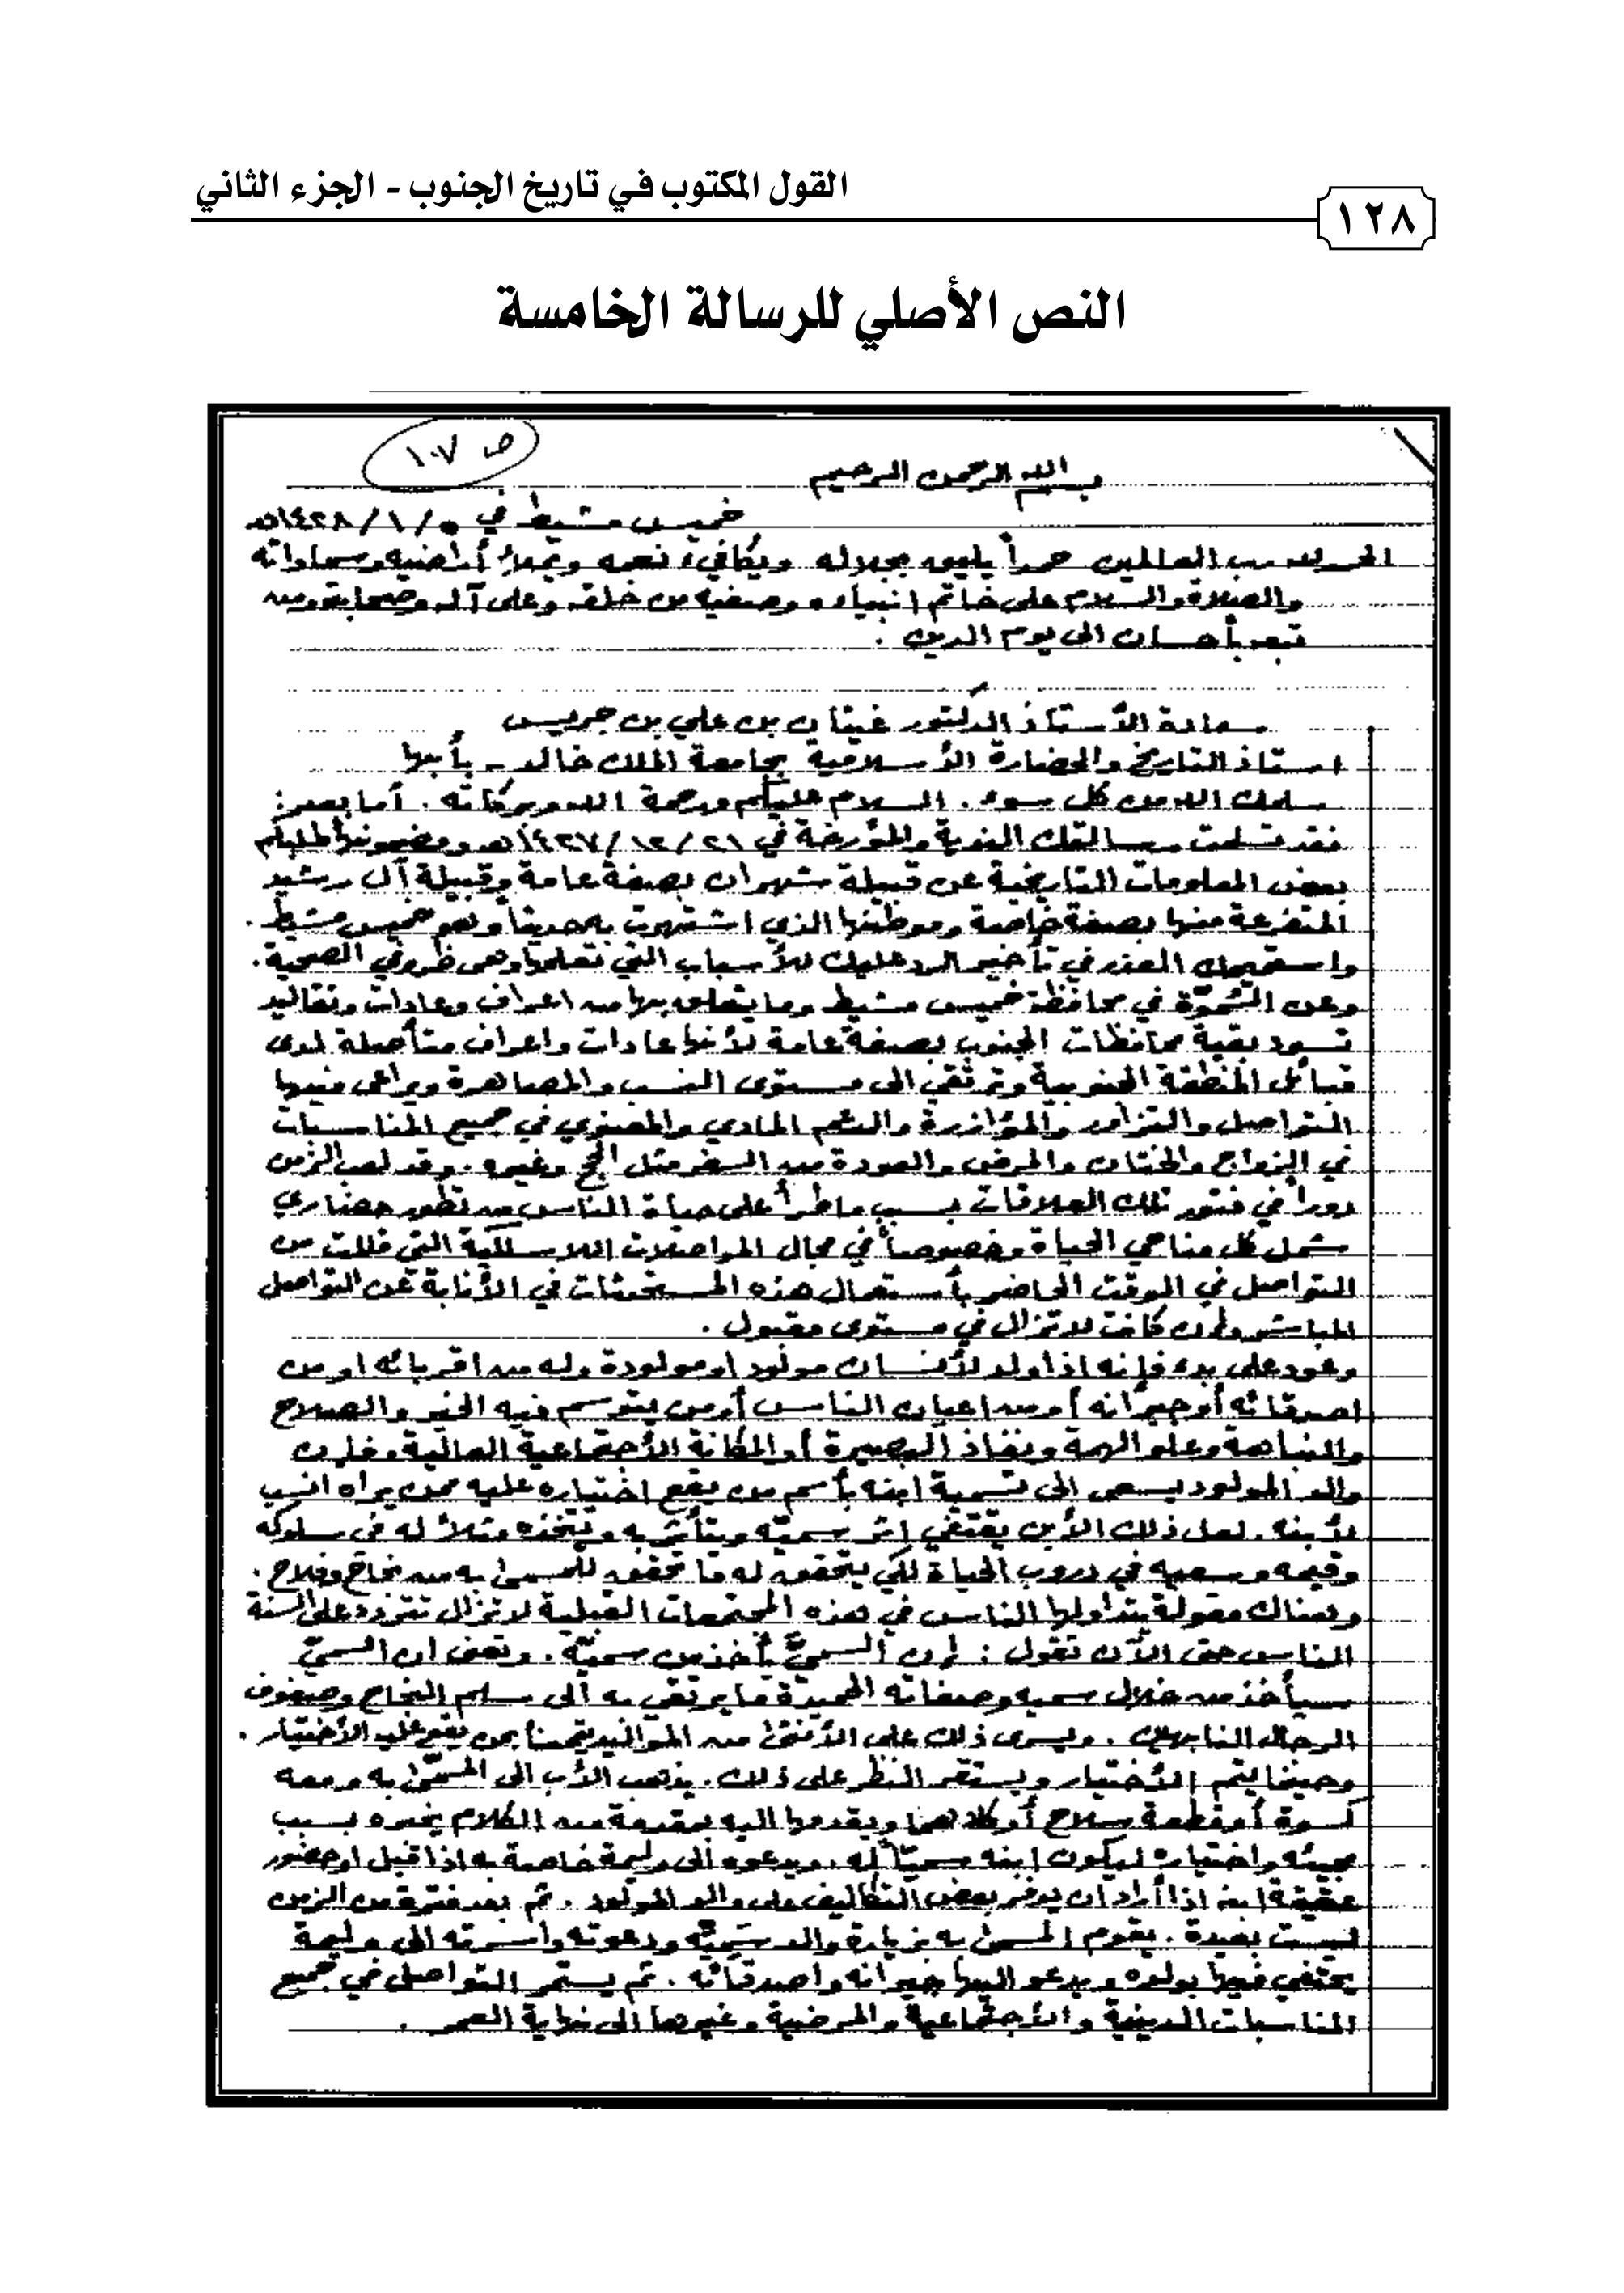 القول المكتوب في تاريخ الجنوب - الجزء الثاني
١٢٨
النص الأصلي للرسالة الخامسة
ص ١٠٧
بسم الله الرحمن الرحيم
خميس مشيط في ٥/١/١٤٢٨هـ
الحمد لله رب العالمين حمداً يليق بجلاله ويكافيء نعمه ويملأ أراضيه وسماواته
والصلاة والسلام على خاتم انبياءه وصفيه من خلقه وعلى آله وصحابته ومن
تبعه بأحسان الى يوم الدين .
سعادة الأستاذ الدكتور غيثان بن علي بن جريس
استاذ التاريخ والحضارة الأسلامية بجامعة الملك خالد - بأبها
سلمك الله من كل سوء . السلام عليكم ورحمة الله وبركاته . أما بعد :
فقد تسلمت رسالتك الندية والمؤرخة في ٢١/١٢/١٤٢٧هـ ومضمونها طلبكم
بعض المعلومات التاريخية عن قبيلة شهران بصفة عامة وقبيلة آل رشيد
المتفرعة منها بصفة خاصة وموطنها الذي اشتهرت به حديثاً وهو خميس مشيط .
واستميحك العذر في تأخير الرد عليك للأسباب التي تعلمها وهى ظروفي الصحية .
وعن السُّموّة في محافظة خميس مشيط وما يتعلق بها من اعراف وعادات وتقاليد
تسود بقية محافظات الجنوب بصفة عامة لأنها عادات واعراف متأصلة لدى
قبائل المنطقة الجنوبية وترتقي الى مستوى النسب والمصاهرة ويراعى فيها
التواصل والتزاور والمؤازرة والدعم المادي والمعنوي في جميع المناسبات
في الزواج والختان والمرض والعودة من السفر مثل الحج وغيره . وقد لعب الزمن
دوراً في فتور تلك العلاقات بسبب ما طرأ على حياة الناس من تطور حضاري
شمل كل مناحي الحياة وخصوصاً في مجال المواصلات اللاسلكية التي قللت من
التواصل في الوقت الحاضر بأستعمال هذه المستحدثات في الأنابة عن التواصل
المباشر وان كانت لا تزال في مستوى مقبول .
وعود على بدء فإنه اذا ولد لأنسان مولود او مولودة وله من اقربائه او من
اصدقائه أو جيرانه أو من اعيان الناس أو من يتوسم فيه الخير والصلاح
والنباهة وعلو الهمة ونفاذ البصيرة أو المكانة الأجتماعية العالية . فإن
والد المولود يسعى الى تسمية ابنه بأسم من يقع اختياره عليه ممن يراه انسب
لأبنه . لعل ذلك الأبن يقتفي اثر سميّه ويتأثر به ويتخذه مثلاً له في سلوكه
وقيمه وسعيه في دروب الحياة لكي يتحقق له ما تحقق للمسمىٰ به من نجاح وفلاح .
وهناك مقولة يتداولها الناس في هذه المجتمعات القبلية لا تزال تتردد على السنة
الناس حتى الآن تقول : إن السميّ يأخذ من سميّه . وتعنى ان السميّ
سيأخذ من خلال سميه وصفاته الحميدة ما يرتقي به الى سلم النجاح وصفوف
الرجال النابهين . ويسرى ذلك على الأنثىٰ من المواليد تيمناً بمن يقع عليه الأختيار .
وحينما يتم الأختيار ويستقر النظر على ذلك . يذهب الأب الى المسمّىٰ به ومعه
كسوة أو قطعة سلاح أو كلاهما ويقدمها اليه بمقدمة من الكلام يخبره بسبب
مجيئه واختياره ليكون ابنه سميّاً له . ويدعوه الى وليمة خاصة به اذا قبل او حضور
عقيقة ابنه اذا أراد ان يوفر بعض التكاليف على والد المولود . ثم بعد فترة من الزمن
ليست بعيدة . يقوم المسمىٰ به بزيارة والد سَمِيّه ودعوته واسرته الى وليمة
يحتفي فيها بولده ويدعو اليها جيرانه واصدقائه . ثم يستمر التواصل في جميع
المناسبات الدينية والأجتماعية والمرضية وغيرها الى نهاية العمر .